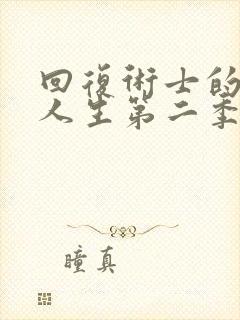 回復術士的
人生第二季
瞳真